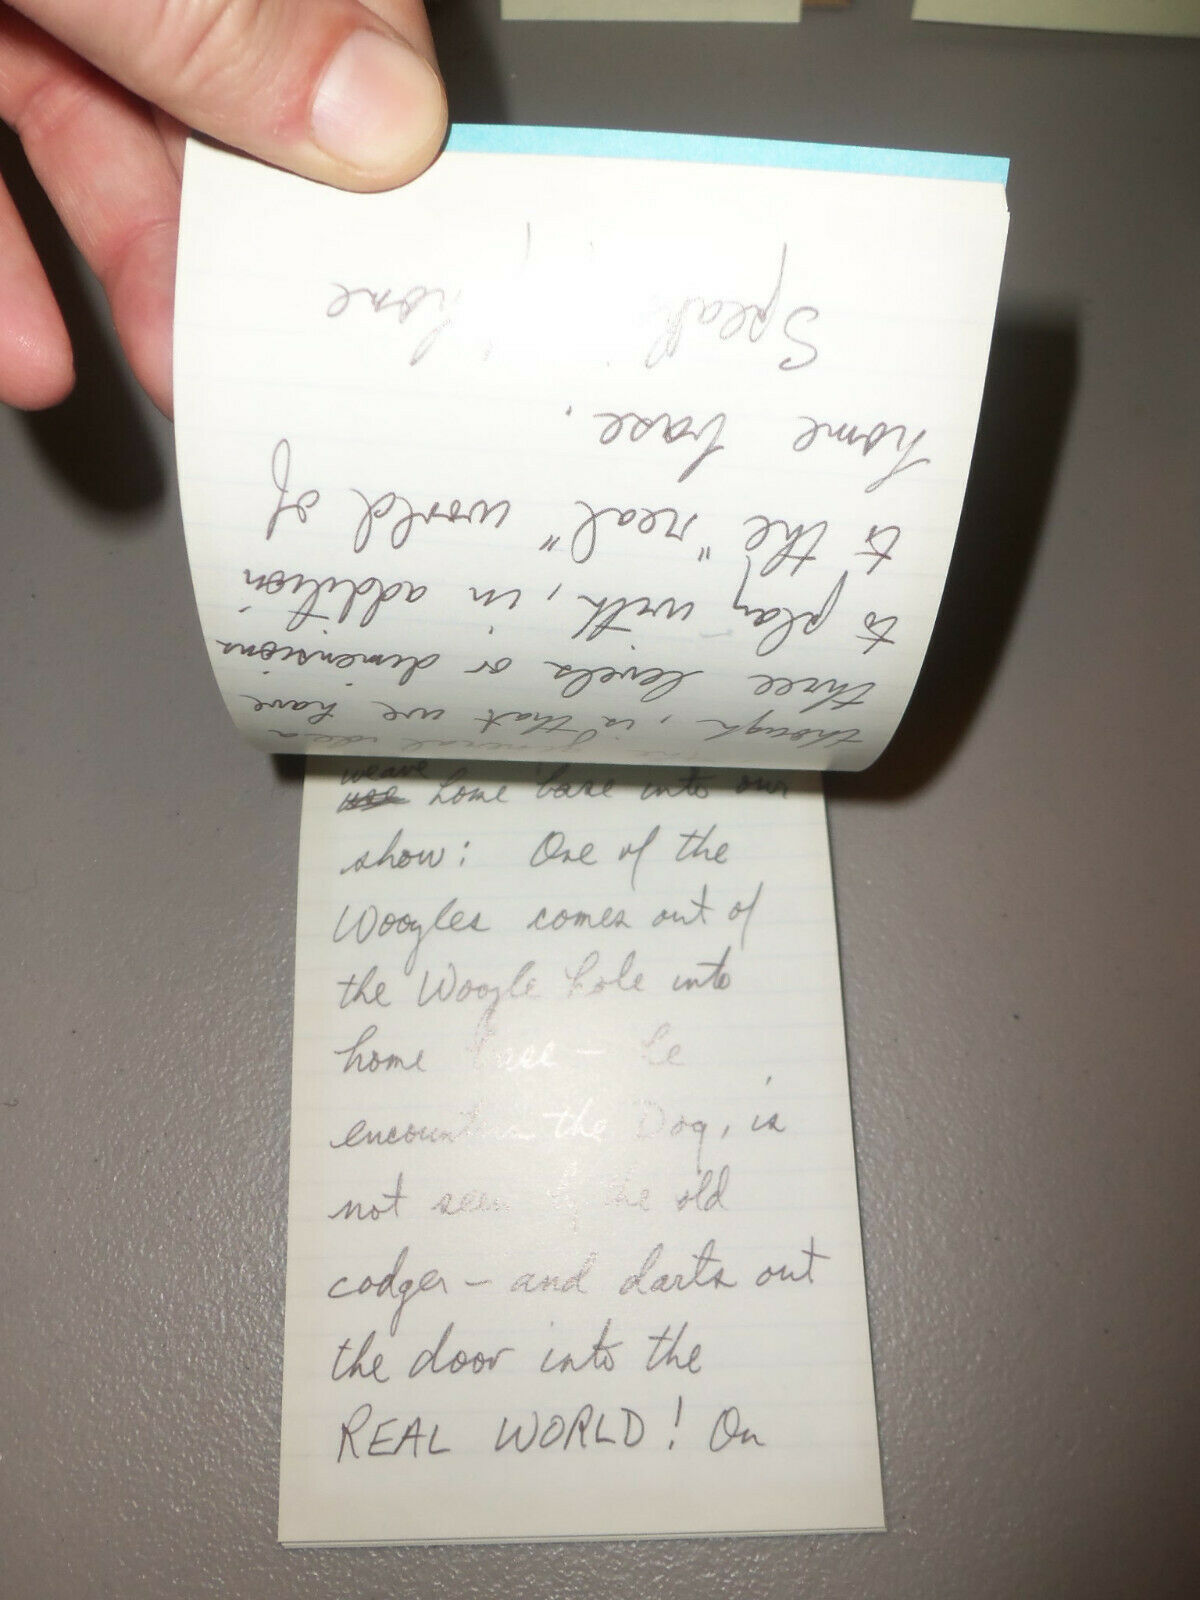 general idea
though, is that we have
three levels or dimensions
to play with, in addition
to the "real" world of
home base.
Speaking of home
weave
use home base into our
show: One of the
Woogles comes out of
the Woogle hole into
home base - he
encounters the Dog, is
not seen by the old
codger - and darts out
the door into the
REAL WORLD! On